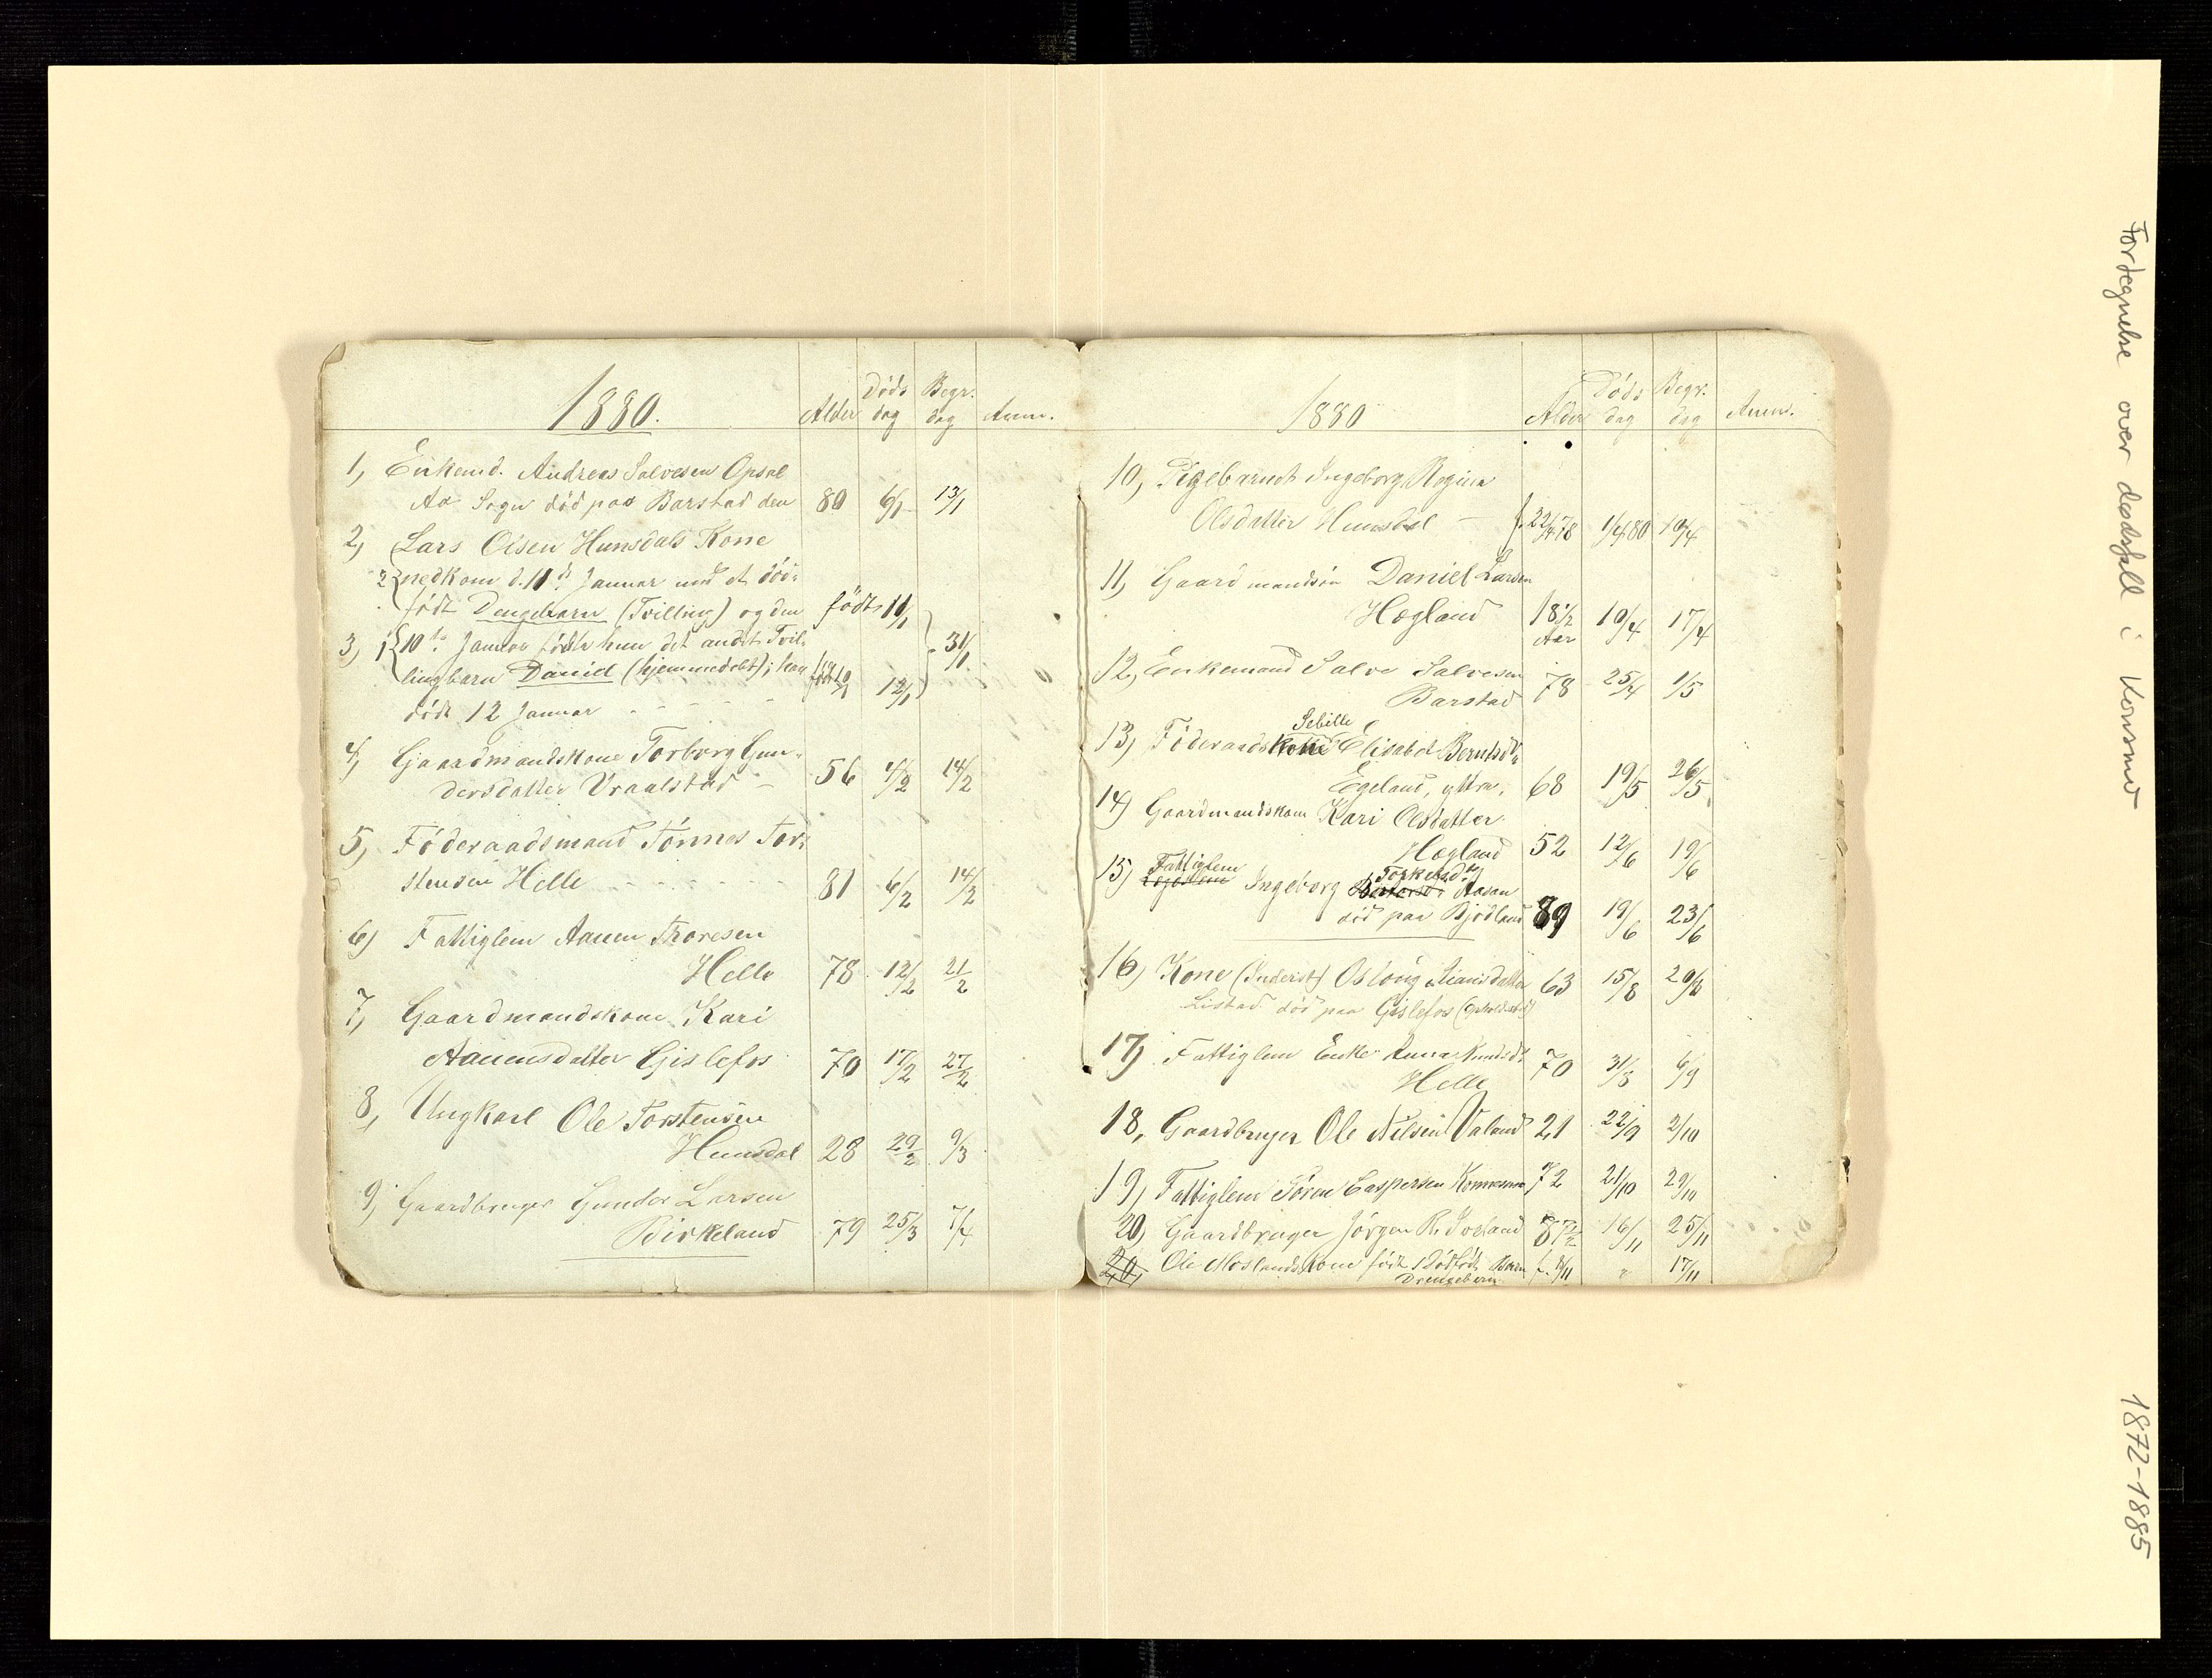 1880. Alder Døds dag Begr. dag Anm.
1, Enkemd. Andreas Salvesen Opsal
Aa Sogn død paa Barstad den 80 6/1 13/1
2, Lars Olsen Hunsdals Kone
2 nedkom d. 11te Januar med et død-
født Dengebarn (Tvilling) og den født 11/1
3, 1 10de Januar fødte hun det andet Tvil- 31/1
lingbarn Daniel (hjemmedøbt); han født 10/1 12/1
døde 12 Januar
4, Gaardmandskone Torborg Gun-
dersdatter Vraalstad 56 4/2 14/2
5, Føderaadsmand Tønnes Tor-
stensen Helle 81 6/2 14/2
6) Fattiglem Aanen Thoresen
Helle 78 12/2 21/2
7, Gaardmandskone Kari
Aanensdatter Gislefos 70 17/2 27/2
8, Ungkarl Ole Torstensen
Hunsdal 28 29/2 9/3
9, Gaardbruger Gunder Larsen
Birkeland 79 25/3 7/4
1880 Alder Døds dag Begr. dag Anm.
10, Pigebarnet Ingeborg Regine
Olsdatter Hunsdal f. 22/4 78 1/4 80 10/4
11, Gaardmandsøn Daniel Larsen
Høgland 18 1/2 Aar 10/4 17/4
12, Enkemand Salve Salvesen
Barstad 78 25/4 1/5
Sebille
13, Føderaadskone Elisabet Berntsdr
Egeland, yttre, 68 19/5 26/5
14) Gaardmandskone Kari Olsdatter
Høgland 52 12/6 19/6
Fattiglem Torkelsdr
15) Ingeborg Aasan
død paa Bjødland 89 19/6 23/6
16) Kone (Inderst) Oslaug Stiansdatter 63 15/8 20/8
Listad død paa Gislefos
17) Fattiglem Enke Anna Knudsdr 70 31/8 6/9
Helle
18, Gaardbruger Ole Nilsen Valand 21 22/9 2/10
19) Fattiglem Søren Caspersen Konnesmo 72 21/10 29/10
20) Gaardbruger Jørgen R. Iveland 87 1/2 16/11 25/11
20, Ole Moslands Kone født 1 Dødfødt Barn f. 8/11 " 17/11
Drengebarn
Fortegnelse over dødsfall i Konsmo
1872-1885